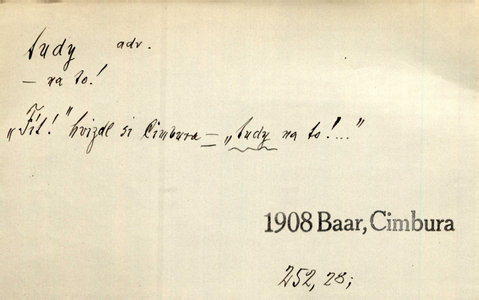 tudy adv.
— na to!
„Fít!" hvízdl si Cimbura — „tudy na to!..."
1908 Baar, Cimbura
252, 28;